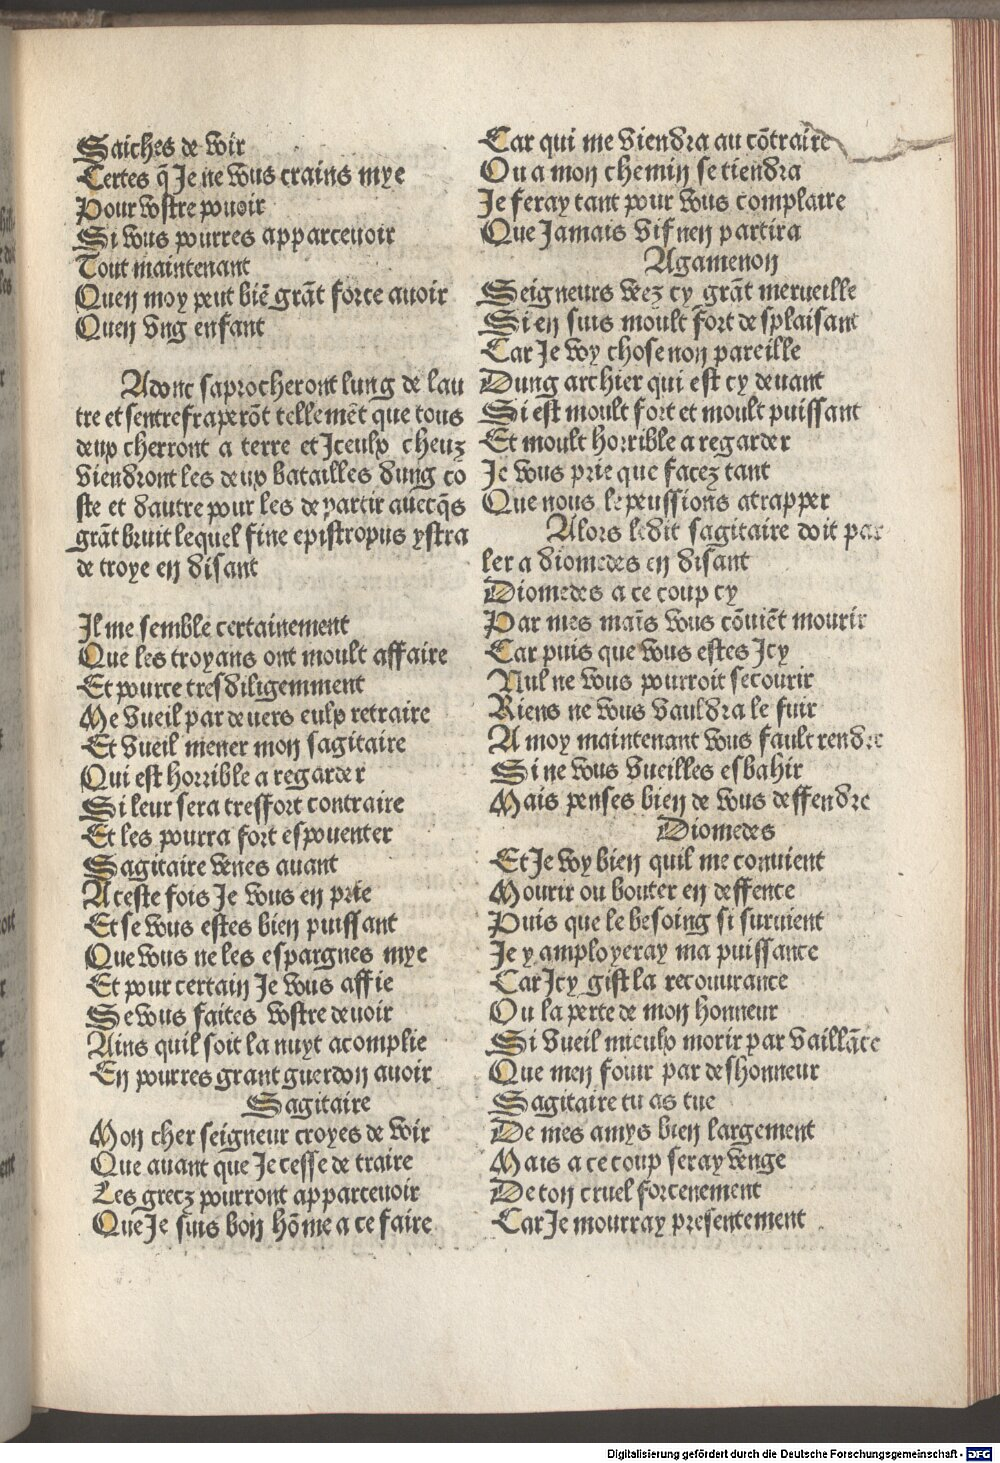 Saiches de voir
Certes q̃ Je ne vous crains mye
Pour vostre pouoir
Si vous pourres apparceuoir
Tout maintenant
Quen moy peut biẽ grãt force auoir
Quen vng enfant
Adonc saprocheront lung de lau
tre et sentrefraperõt tellemẽt que tous
deux cherront a terre et Iceulx cheuz
viendront les deux batailles dung co
ste et dautre pour les departir auecq̃s
grãt bruit lequel fine epistropus ystra
de troye en disant
Il me semble certainement
Que les troyans ont moult affaire
Et pource tres diligemment
Me vueil par deuers eulx retraire
Et vueil mener mon sagitaire
Qui est horrible a regarder
Si leur sera tresfort contraire
Et les pourra fort espouenter
Sagitaire venes auant
A ceste fois Je vous en prie
Et se vous estes bien puissant
Que vous ne les espargnes mye
Et pour certain Je vous affie
Se vous faites vostre deuoir
Ains quil soit la nuyt acomplie
En pourres grant guerdon auoir
Sagitaire
Mon cher seigneur croyes de voir
Que auant que Je cesse de traire
Les grecz pourront apparceuoir
Que Je suis bon hõme a ce faire
Car qui me viendra au cõtraire
Ou a mon chemin se tiendra
Je feray tant pour vous complaire
Que Jamais vif nen partira
Agamenon
Seigneurs veez cy grãt merueille
Si en suis moult fort desplaisant
Car Je voy chose non pareille
Dung archier qui est cy deuant
Si est moult fort et moult puissant
Et moult horrible a regarder
Je vous prie que facez tant
Que nous le peussions atrapper
Alors ledit sagitaire doit par
ler a diomedes en disant
Diomedes a ce coup cy
Par mes maĩs vous cõuiẽt mourir
Car puis que vous estes Icy
Nul ne vous pourroit secourir
Riens ne vous vauldra le fuir
A moy maintenant vous fault rendre
Si ne vous vueilles esbahir
Mais penses bien de vous deffendre
Diomedes
Et Je voy bien quil me conuient
Mourir ou bouter en deffence
Puis que le besoing si suruient
Je y amployeray ma puissance
Car Icy gist la recouurance
Ou la perte de mon honneur
Si vueil mieulx morir par vaillãce
Que men fouir par deshonneur
Sagitaire tu as tue
De mes amys bien largement
Mais a ce coup seray venge
De ton cruel forcenement
Car Je mourray presentement
Digitalisierung gefördert durch die Deutsche Forschungsgemeinschaft - DFG